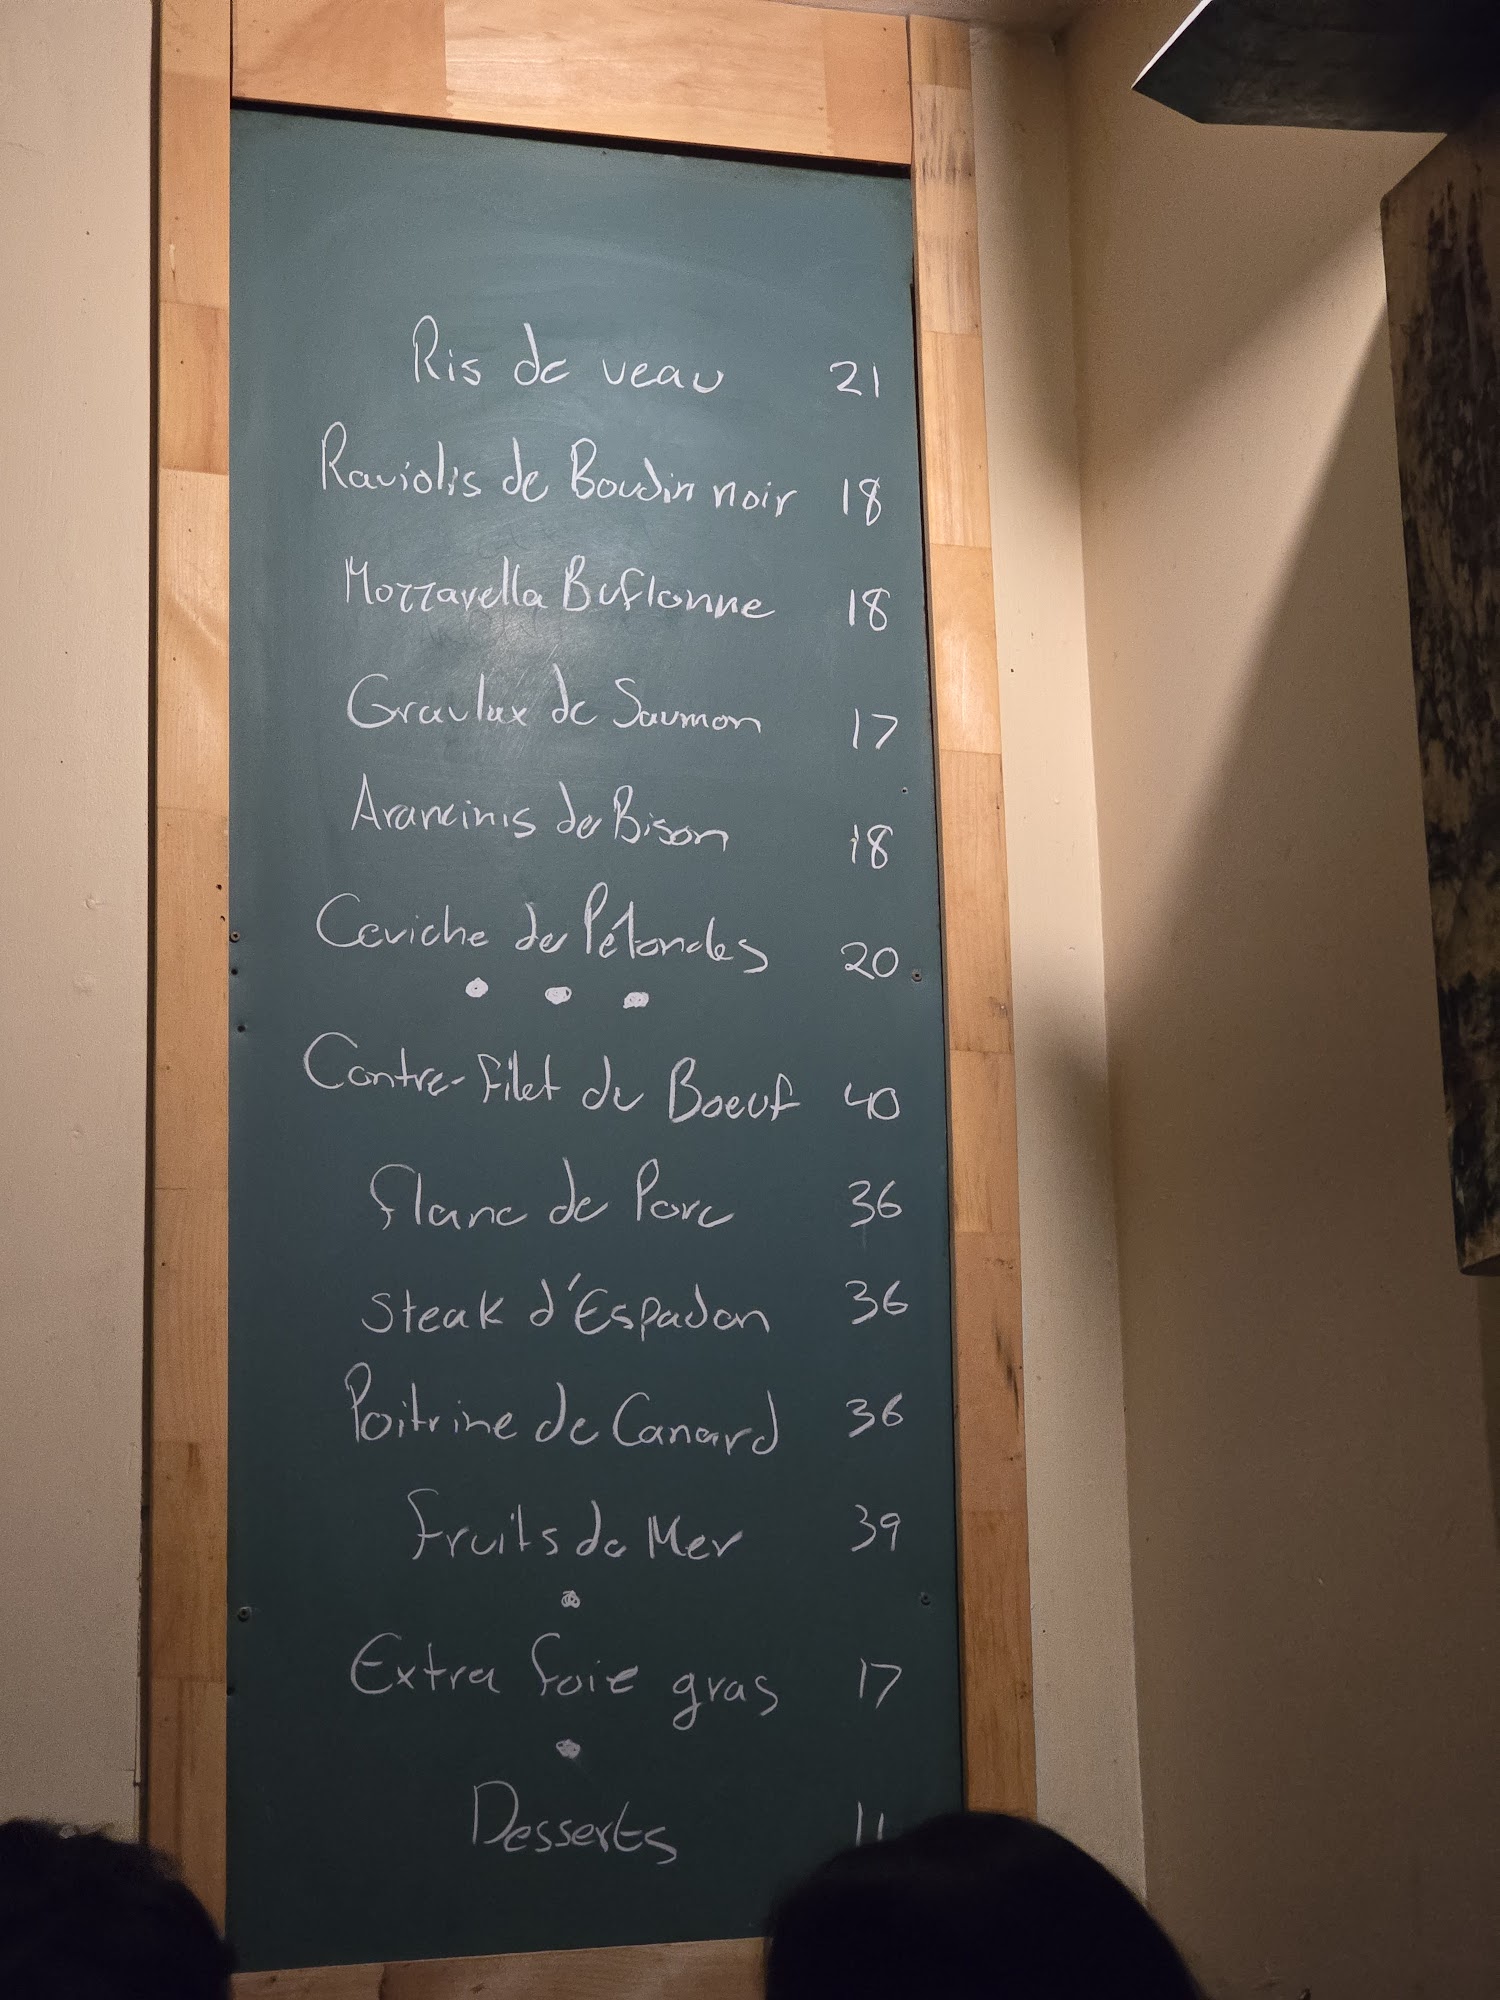 Ris de veau 21
Raviolis de Boudin noir 18
Mozzarella Buflonne 18
Gravlax de Saumon 17
Arancinis de Bison 18
Ceviche de Pétoncles 20
Contre-filet du Boeuf 40
Flanc de Porc 36
Steak d'Espadon 36
Poitrine de Canard 36
Fruits de Mer 39
Extra foie gras 17
Desserts 11